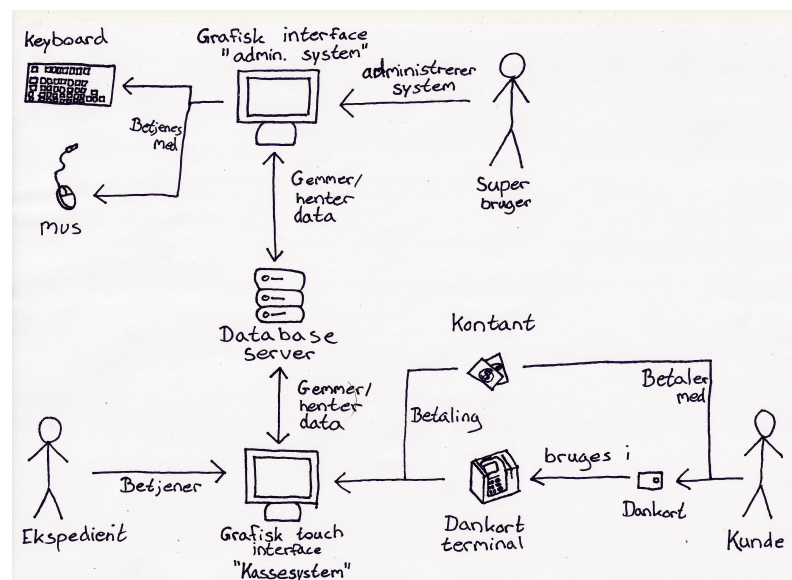 Keyboard
Grafisk interface
"admin. system"
administrerer
system
Betjenes
med
Mus
Gemmer/
henter
data
Super
bruger
Database
server
Kontant
Gemmer/
henter
data
Betaling
Betaler
med
Ekspedient
Betjener
Grafisk touch
interface
"Kassesystem"
Dankort
terminal
bruges i
Dankort
Kunde